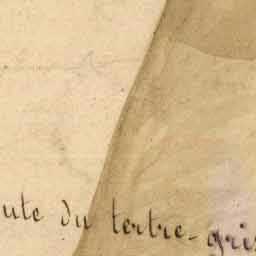 ute du tertre-gris